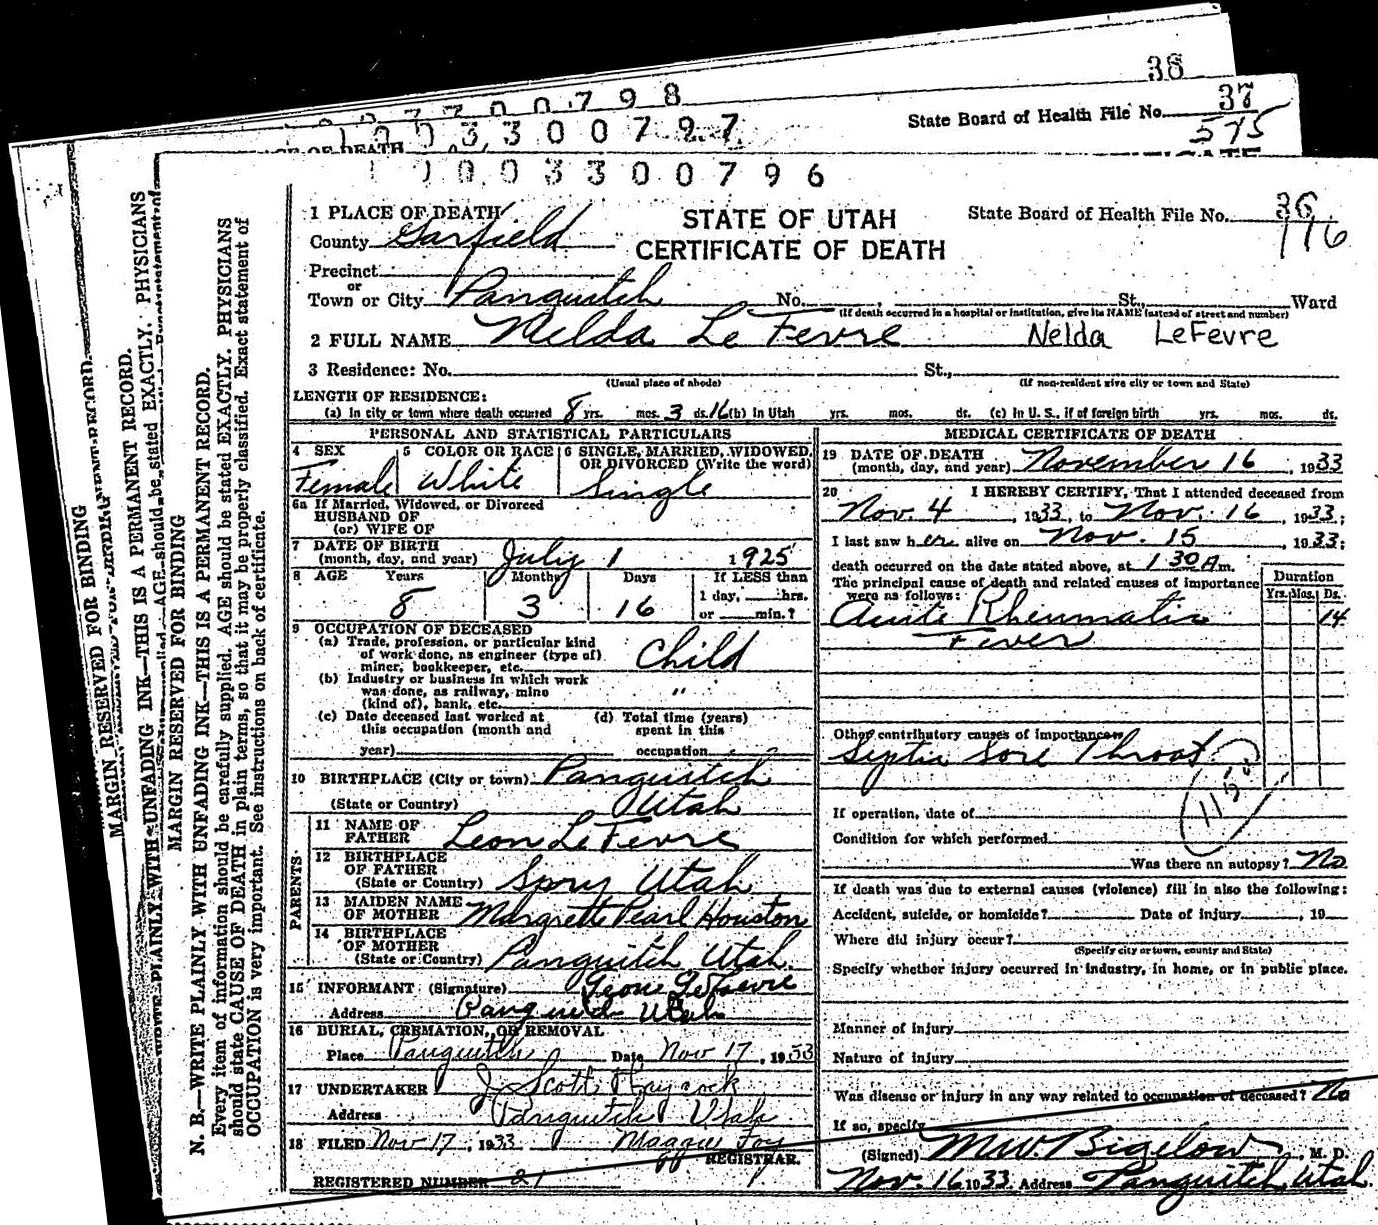 38
37
State Board of Health File No.
575
1003300797
1003300796
1 PLACE OF DEATH
STATE OF UTAH
State Board of Health File No. 36
116
County Garfield
CERTIFICATE OF DEATH
Precinct
or
Town or City Panguitch No. , St., Ward
(If death occurred in a hospital or institution, give its NAME instead of street and number)
2 FULL NAME Nelda Le Fevre Nelda LeFevre
3 Residence: No. St.,
(Usual place of abode) (If non-resident give city or town and State)
LENGTH OF RESIDENCE:
(a) In city or town where death occurred 8 yrs. mos. 3 ds. 16 (b) In Utah yrs. mos. ds. (c) In U. S., if of foreign birth yrs. mos. ds.
PERSONAL AND STATISTICAL PARTICULARS
4 SEX 5 COLOR OR RACE 6 SINGLE, MARRIED, WIDOWED,
OR DIVORCED (Write the word)
Female White Single
6a If Married, Widowed, or Divorced
HUSBAND OF
(or) WIFE OF
7 DATE OF BIRTH
(month, day, and year) July 1 1925
8 AGE Years Months Days If LESS than
1 day, hrs.
8 3 16 or min.?
9 OCCUPATION OF DECEASED
(a) Trade, profession, or particular kind
of work done, as engineer (type of)
miner, bookkeeper, etc. Child
(b) Industry or business in which work
was done, as railway, mine "
(kind of), bank, etc.
(c) Date deceased last worked at (d) Total time (years)
this occupation (month and spent in this
year) occupation
10 BIRTHPLACE (City or town) Panguitch
(State or Country) Utah
PARENTS
11 NAME OF
FATHER Leon LeFevre
12 BIRTHPLACE
OF FATHER
(State or Country) Spry Utah
13 MAIDEN NAME
OF MOTHER Margrette Pearl Houston
14 BIRTHPLACE
OF MOTHER
(State or Country) Panguitch Utah.
15 INFORMANT (Signature) LeFevre
Address Utah
16 BURIAL, CREMATION, OR REMOVAL
Place Panguitch Date Nov 17, 1933
17 UNDERTAKER J Scott Haycock
Address Panguitch Utah
18 FILED Nov 17, 1933 Maggie Foy
REGISTRAR.
REGISTERED NUMBER 21
MEDICAL CERTIFICATE OF DEATH
19 DATE OF DEATH
(month, day, and year) November 16, 1933
20 I HEREBY CERTIFY, That I attended deceased from
Nov. 4, 1933, to Nov. 16, 1933;
I last saw her alive on Nov. 15, 1933;
death occurred on the date stated above, at 1 30 A m.
The principal cause of death and related causes of importance
were as follows:
Duration
Yrs. Mos. Ds.
Acute Rheumatic 14
Fever
Other contributory causes of importance
Septic Sore Throat
115
If operation, date of
Condition for which performed
Was there an autopsy? No
If death was due to external causes (violence) fill in also the following:
Accident, suicide, or homicide? Date of injury , 19
Where did injury occur?
(Specify city or town, county and State)
Specify whether injury occurred in industry, in home, or in public place.
Manner of injury
Nature of injury
Was disease or injury in any way related to occupation of deceased? No
If so, specify
(Signed) M.W. Bigelow, M. D.
Nov. 16 1933. Address Panguitch, Utah.
MARGIN RESERVED FOR BINDING
N. B.—WRITE PLAINLY WITH UNFADING INK—THIS IS A PERMANENT RECORD.
Every item of information should be carefully supplied. AGE should be stated EXACTLY. PHYSICIANS
should state CAUSE OF DEATH in plain terms, so that it may be properly classified. Exact statement of
OCCUPATION is very important. See instructions on back of certificate.